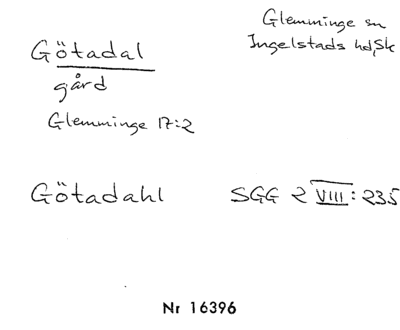 Götadal
gård
Glemminge 17:2
Glemminge sn
Ingelstads hd, Sk
Götadahl SGG 2 VIII: 235
Nr 16396